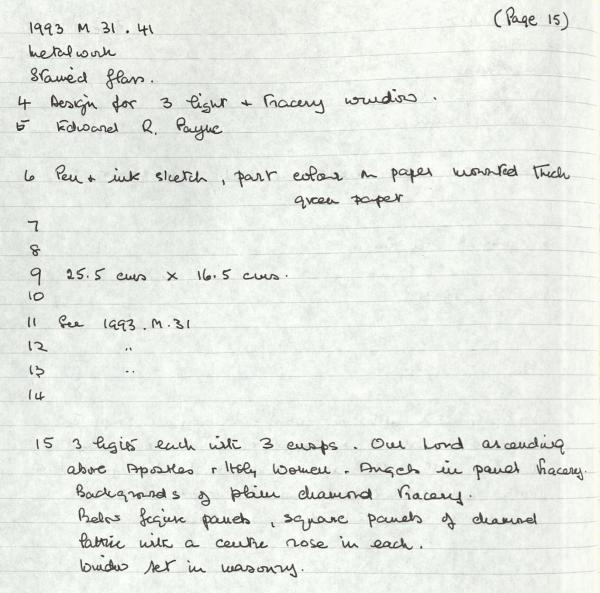 (Page 15)
1993 M 31.41
Metalwork
Stained Glass.
4 Design for 3 light + Tracery window.
5 Edward R. Payne
6 Pen + ink sketch, part colour on paper mounted thick
green paper
7
8
9 25.5 cms x 16.5 cms.
10
11 See 1993.M.31
12 "
13 "
14
15 3 lights each with 3 cusps. Our Lord ascending
above Apostles + Holy Women. Angels in panel tracery.
Backgrounds of plain diamond tracery.
Below figure panels, square panels of diamond
fabric with a centre rose in each.
Window set in masonry.